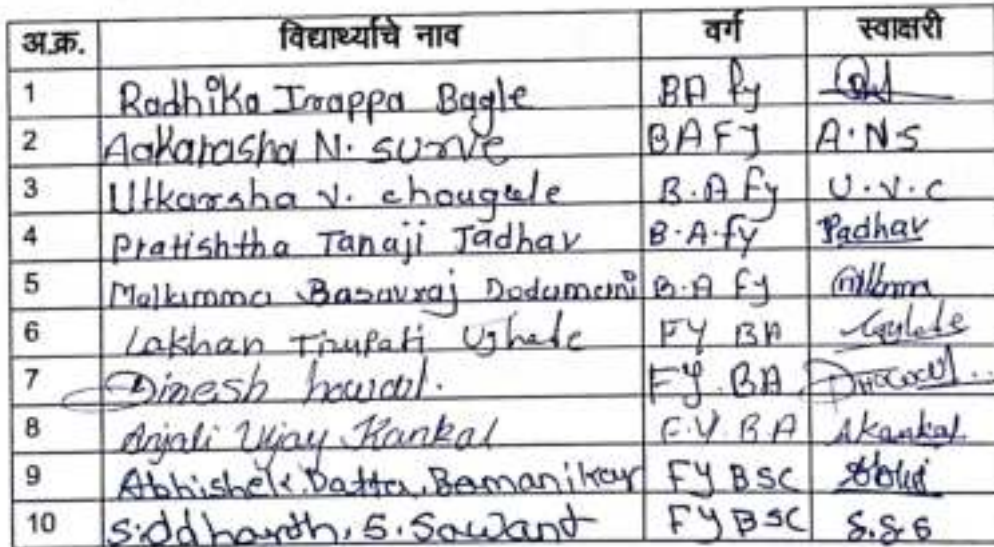 अ.क्र. विद्यार्थ्याचे नाव वर्ग स्वाक्षरी
1 Radhika Irappa Bagle BA fy
2 Aakarasha N. surve BAFY A.N.S
3 Utkarsha v. chougule B.A fy U.V.C
4 Pratishtha Tanaji Jadhav B.A.fy Padhav
5 Malkimma Basavraj Dodamani B.A fy
6 Lakhan Tirupati Ughade FY BA
7 Dinesh hawal. FY.BA
8 Anjali Vijay Kankal F.Y.B.A Akankal
9 Abhishek.Datta.Bamanikar FY BSC
10 Siddharth.S.Sawant FYBSC S.S.S